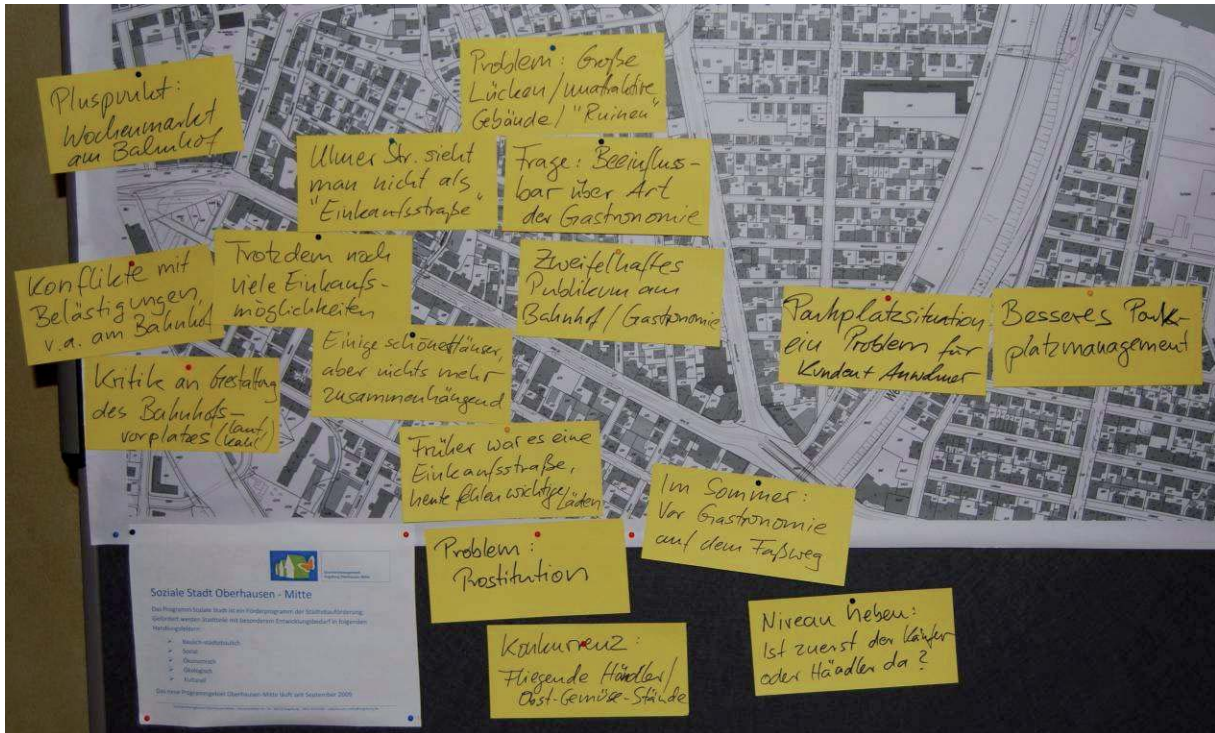 Pluspunkt:
Wochenmarkt
am Bahnhof
Problem: Große
Lücken/unattraktive
Gebäude/"Ruinen"
Ulmer Str. sieht
man nicht als
"Einkaufsstraße"
Frage: Beeinfluss-
bar über Art
der Gastronomie
Konflikte mit
Belästigungen,
v.a. am Bahnhof
Trotzdem noch
viele Einkaufs-
möglichkeiten
Zweifelhaftes
Publikum am
Bahnhof/Gastronomie
Parkplatzsituation
ein Problem für
Kunden + Anwohner
Besseres Park-
platzmanagement
Kritik an Gestaltung
des Bahnhofs-
vorplatzes
Einige schöne Häuser,
aber nichts mehr
zusammenhängend
Früher war es eine
Einkaufsstraße,
heute fehlen wichtige Läden
Im Sommer:
Vor Gastronomie
auf dem Faßweg
Problem:
Prostitution
Konkurrenz:
Fliegende Händler/
Obst-Gemüse-Stände
Niveau heben:
Ist zuerst der Käufer
oder Händler da?
Soziale Stadt Oberhausen - Mitte
Das Programm Soziale Stadt ist ein Förderprogramm der Städtebauförderung.
Gefördert werden Stadtteile mit besonderem Entwicklungsbedarf in folgenden
Handlungsfeldern:
Baulich-städtebaulich
Sozial
Ökonomisch
Ökologisch
Kulturell
Das neue Programmgebiet Oberhausen-Mitte läuft seit September 2009